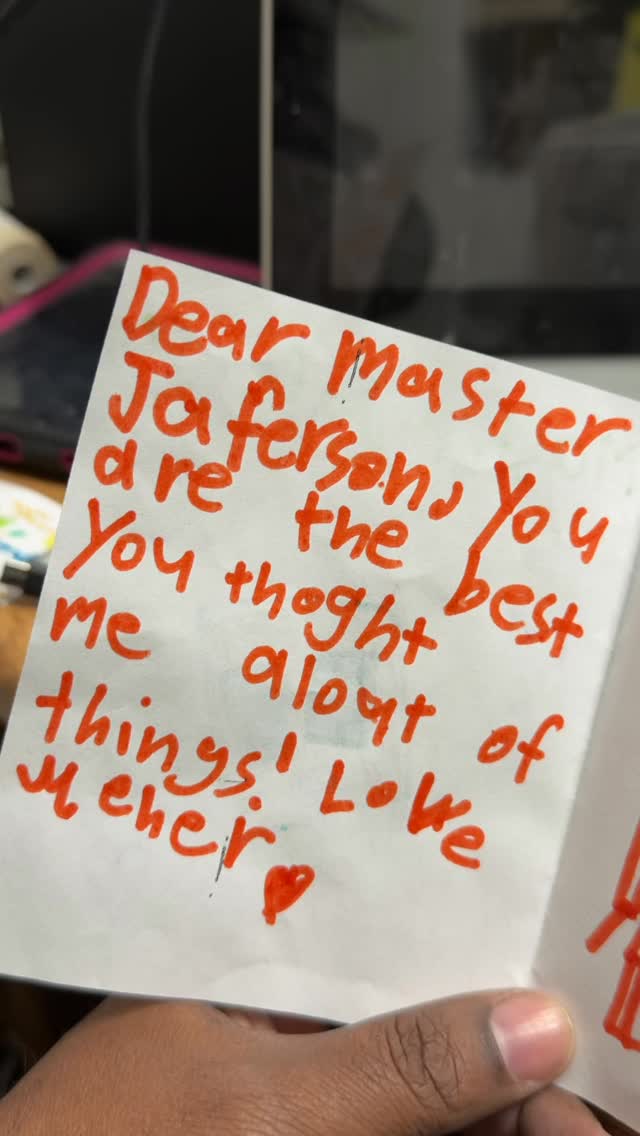 Dear Master
Jaferson, You
are the best
You thoght
me alout of
things! Love
Meher